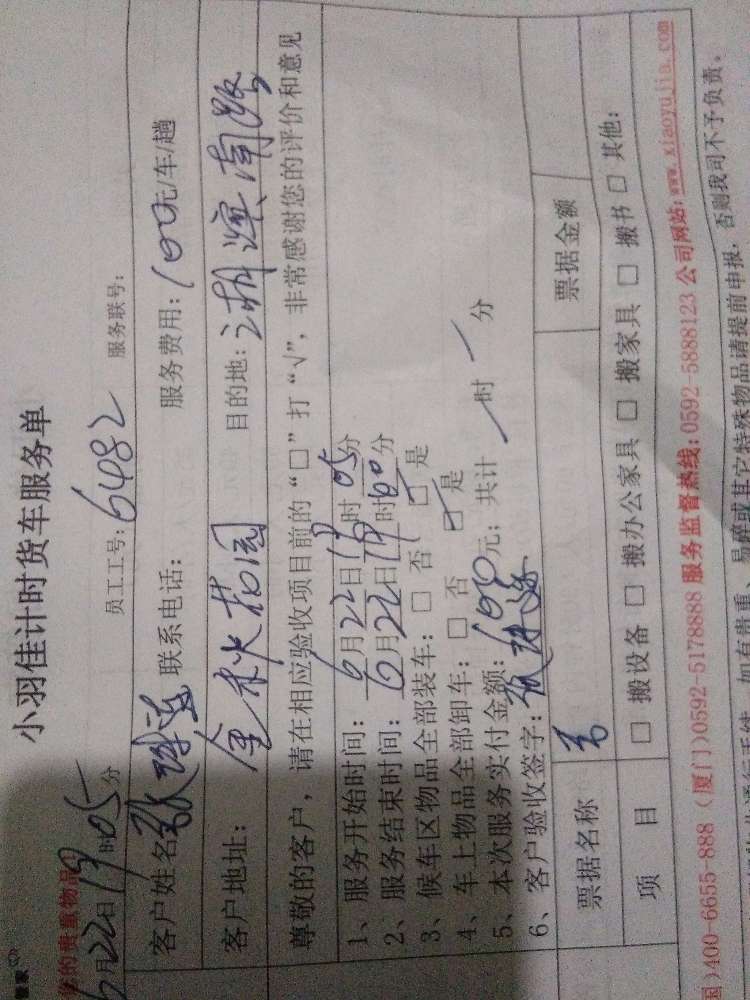 小羽佳计时货车服务单
您的贵重物品
6月22日19时05分 员工工号: 6482 服务联号:
客户姓名 联系电话: 服务费用: 100元/车/趟
客户地址: 金秋花园 目的地: 湖滨南路
尊敬的客户，请在相应验收项目前的“□”打“√”，非常感谢您的评价和意见
1、服务开始时间: 6月22日19时05分
2、服务结束时间: 6月22日19时60分
3、候车区物品全部装车: □ 否 □ 是
4、车上物品全部卸车: □ 否 □ 是
5、本次服务实付金额: 100元; 共计 时 分
6、客户验收签字:
票据名称 票据金额
项 目 □ 搬设备 □ 搬办公家具 □ 搬家具 □ 搬书 □ 其他:
国)400-6655-888 (厦门)0592-5178888 服务监督热线: 0592-5888123 公司网站: www.xiaoyujia.com
如有贵重、易碎或其它特殊物品请提前申报，否则我司不予负责。